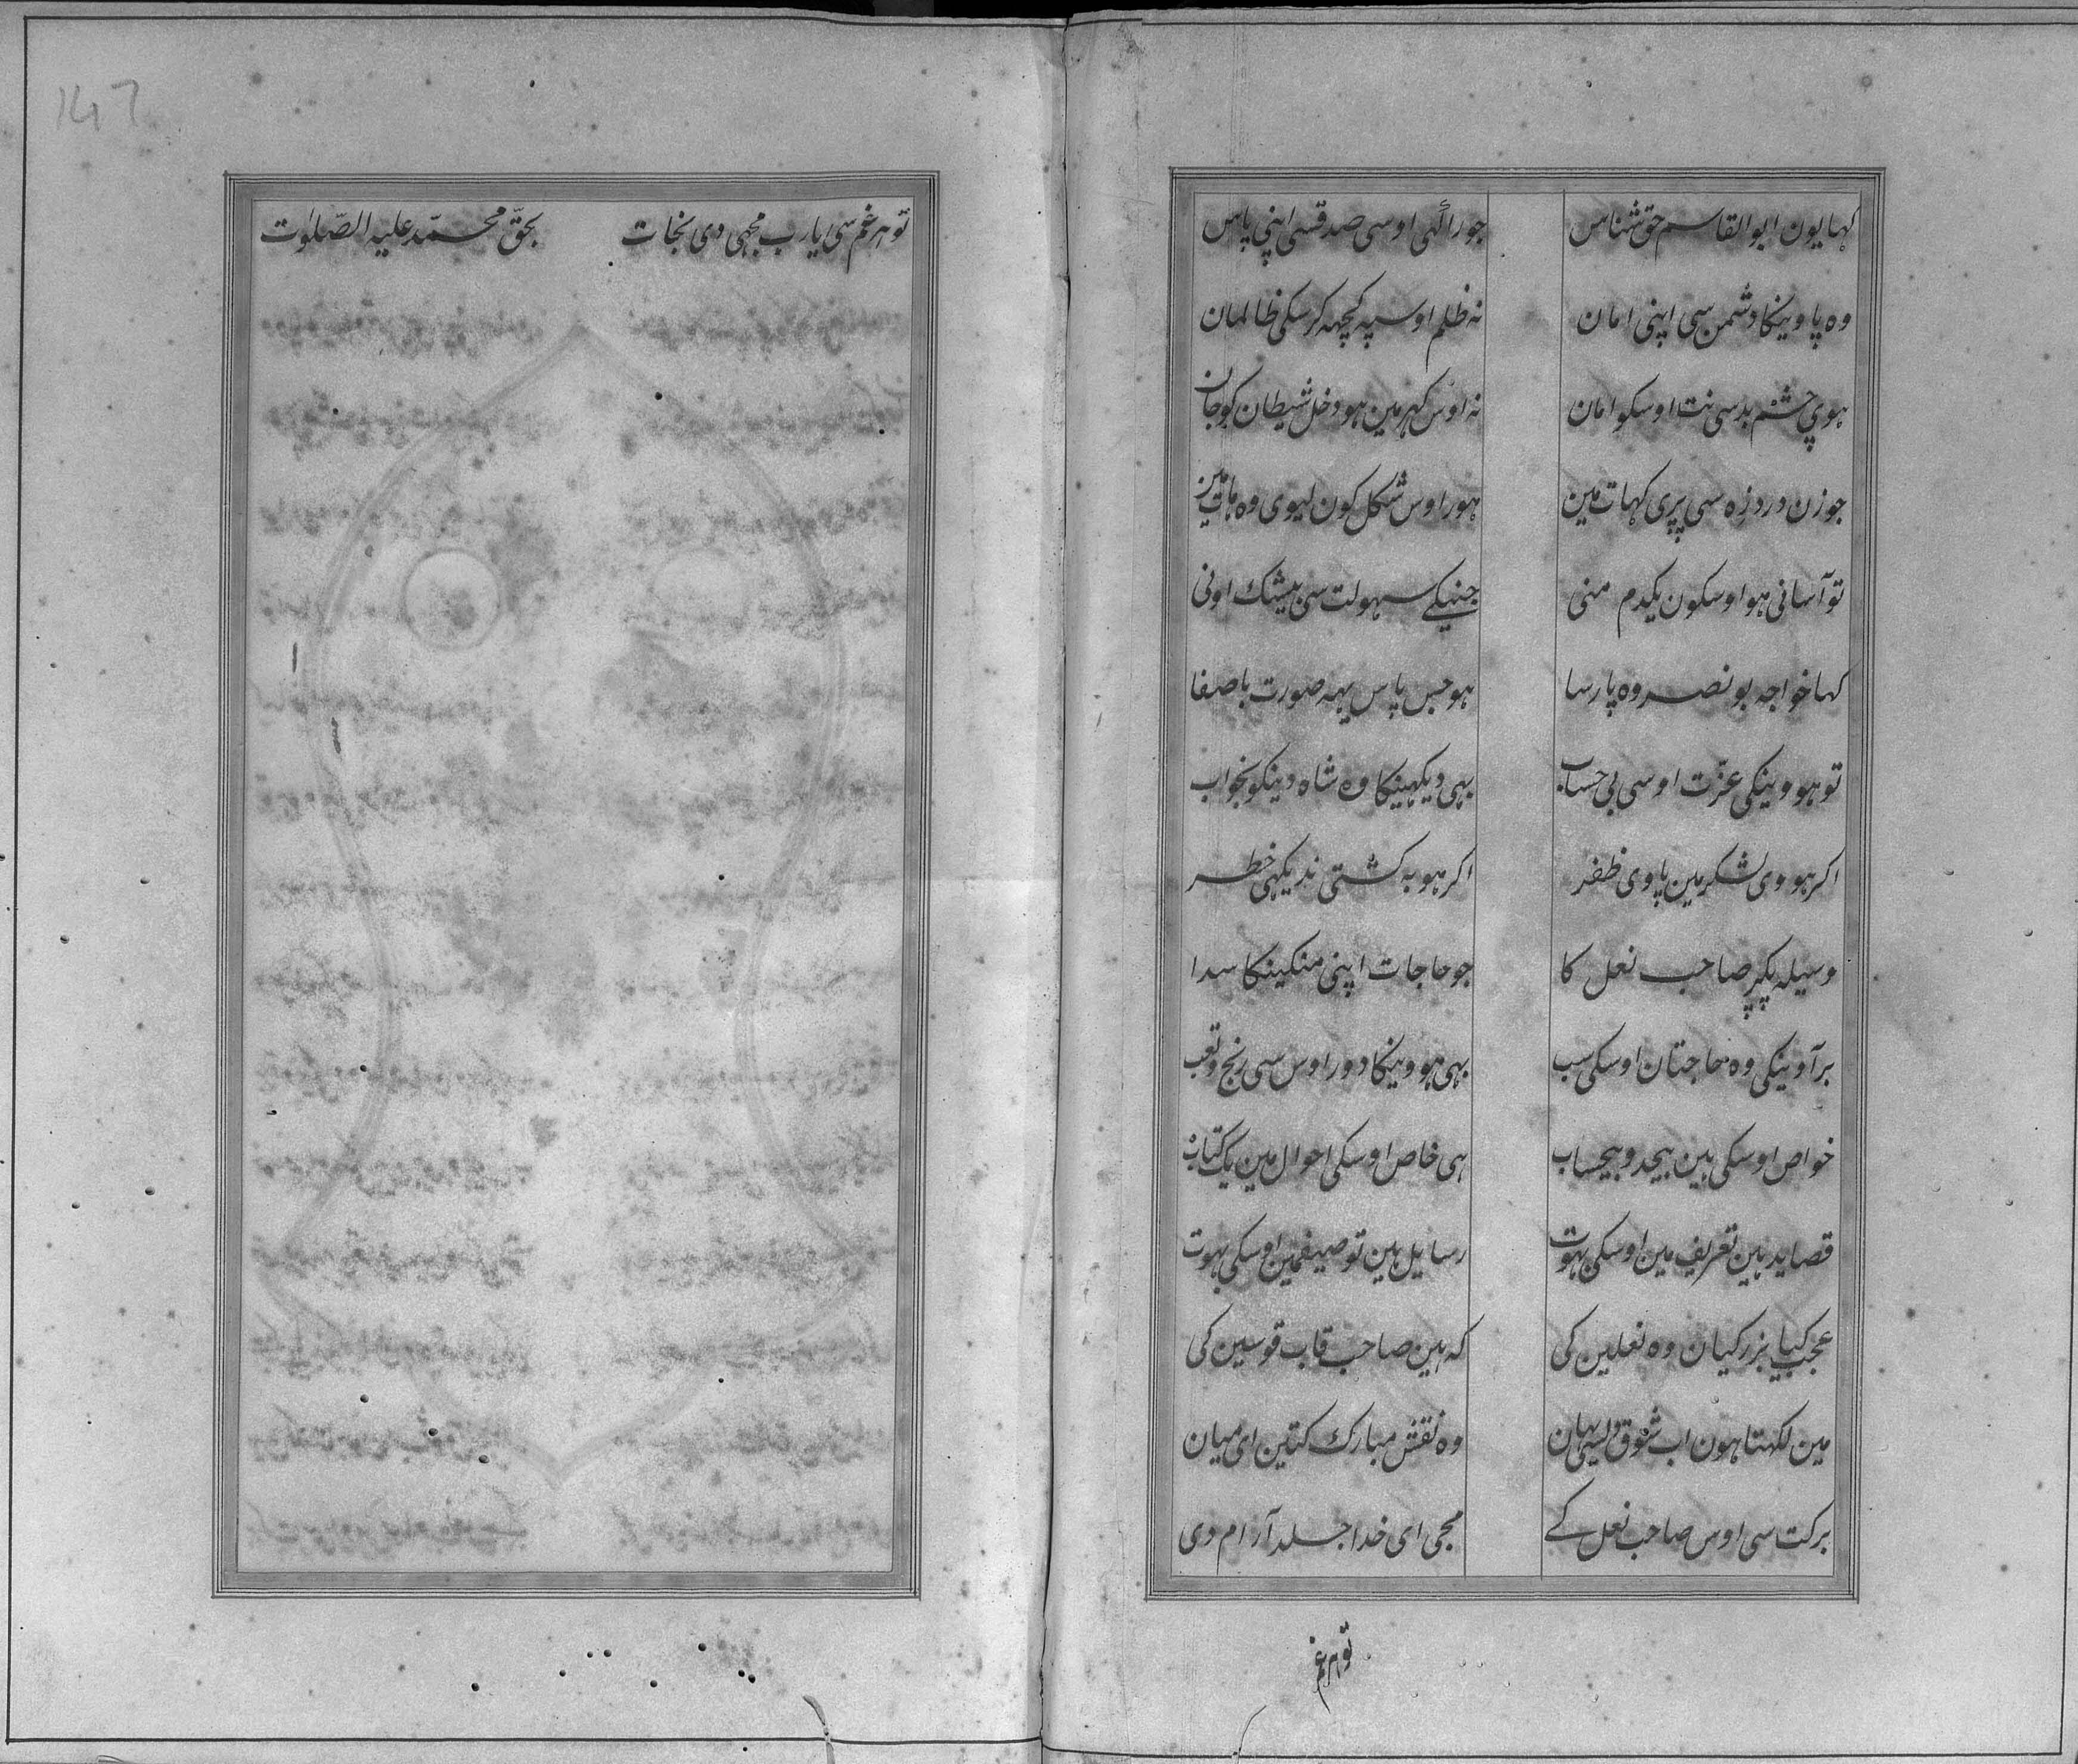 کہا یون ابو القاسم حق شناس جو راکہی اوسی صدقسی اپنی پاس
وہ پاوینکا دشمن سی اپنی امان نہ ظلم اوسپہ کچہہ کر سکی ظالمان
ہوی چشم بد سی نت اوسکو امان نہ اوس کہر مین ہو دخل شیطان کو جان
جو زن درد زہ سی پری کہات مین ہور اوس شکل کون لیوی وہ ہات مین
تو آسانی ہو اوسکون یکدم منی جنیکے سہولت سی بیشک اونی
کہا خواجہ بو نصر وہ پارسا ہو جس پاس یہہ صورت با صفا
تو ہووینکی عزّت اوسی بی حساب بہی دیکہینکا وہ شاہ دینکو بخواب
اکر ہووی لشکر مین پاوی ظفر اکر ہو بہ کشتی ندیکہی خطر
وسیلہ پکر صاحب نعل کا جو حاجات اپنی منکینکا سدا
بر آوینکی وہ حاجتان اوسکی سب بہی ہووینکا دور اوس سی رنج و تعب
خواص اوسکی ہین بیحد و بیحساب ہی خاص اوسکی احوال مین یک کتاب
قصاید ہین تعریف مین اوسکی بہوت رسایل ہین توصیفمین اوسکی بہوت
عجب کیا بزرکیان وہ نعلین کی کہ ہین صاحب قاب قوسین کی
مین لکہتا ہون اب شوق سی یہان وہ نقش مبارک کتین ای میان
برکت سی اوس صاحب نعل کے مجی ای خدا جلد آرام دی
تو ہر غم
تو ہر غم سی یارب مجہی دی نجات بحقّ محمّد علیہ الصّلوٰت
147